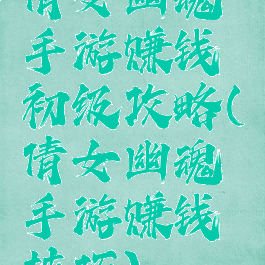 倩女幽魂
手游赚钱
初级攻略(
倩女幽魂
手游赚钱
技巧)